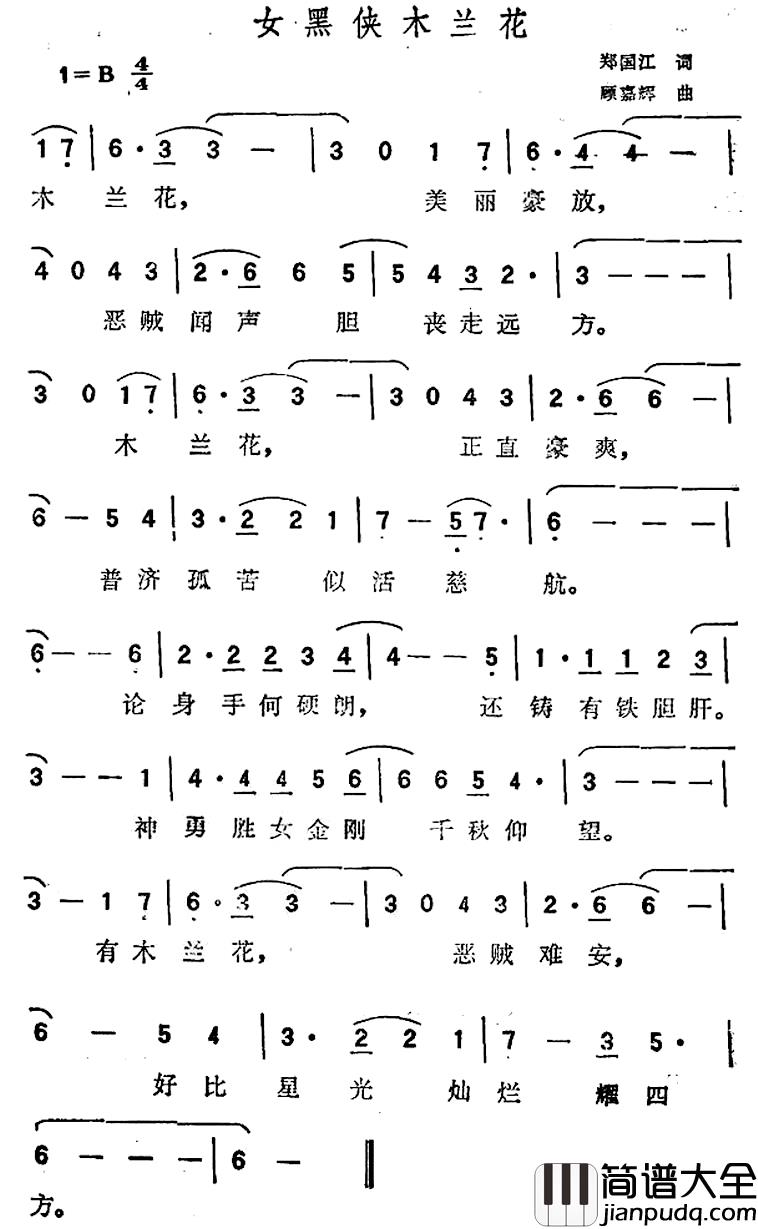 女黑侠木兰花
1=B 4/4
郑国江 词
顾嘉辉 曲
1 7 | 6 · 3 3 — | 3 0 1 7 | 6 · 4 4 — |
木 兰 花， 美 丽 豪 放，
4 0 4 3 | 2 · 6 6 5 | 5 4 3 2 · | 3 — — — |
恶 贼 闻 声 胆 丧 走 远 方。
3 0 1 7 | 6 · 3 3 — | 3 0 4 3 | 2 · 6 6 — |
木 兰 花， 正 直 豪 爽，
6 — 5 4 | 3 · 2 2 1 | 7 — 5 7 · | 6 — — — |
普 济 孤 苦 似 活 慈 航。
6 — — 6 | 2 · 2 2 3 4 | 4 — — 5 | 1 · 1 1 2 3 |
论 身 手 何 硕 朗， 还 铸 有 铁 胆 肝。
3 — — 1 | 4 · 4 4 5 6 | 6 6 5 4 · | 3 — — — |
神 勇 胜 女 金 刚 千 秋 仰 望。
3 — 1 7 | 6 · 3 3 — | 3 0 4 3 | 2 · 6 6 — |
有 木 兰 花， 恶 贼 难 安，
6 — 5 4 | 3 · 2 2 1 | 7 — 3 5 · |
好 比 星 光 灿 烂 耀 四
6 — — — | 6 — ‖
方。
简谱大全
jianpudq.com